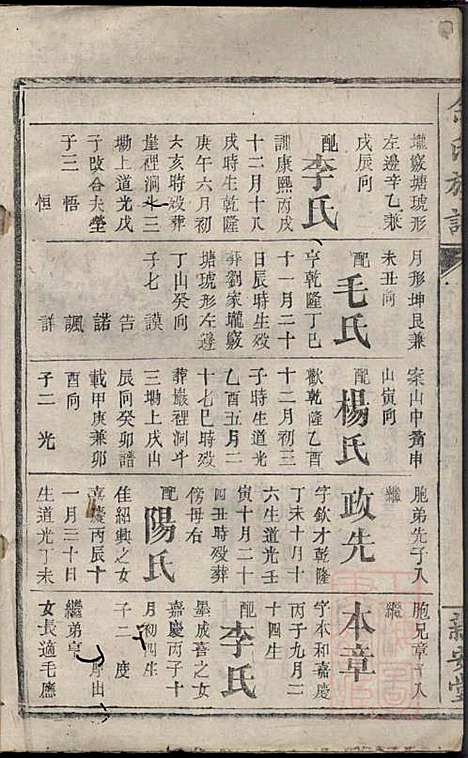 壠竅塘琥形
左邊辛乙兼
戌辰向
配李氏
訓康熙丙戌
十二月十八
戌時生乾隆
庚午六月初
六亥時歿葬
崖裡洞十三
塝上道光戊
子改合夫塋
子三 悟
恒
月形坤艮兼
未丑向
配毛氏
亨乾隆丁巳
十一月二十
日辰時生歿
葬劉家壠竅
塘琥形左邊
丁山癸向
子七 謨
告
諾
諷
詳
案山中嶺申
山寅向
配楊氏
歡乾隆乙酉
十二月初三
子時生道光
乙酉五月二
十七巳時歿
葬巖裡洞斗
三塝上戌山
辰向癸卯譜
載甲庚兼卯
酉向
子二 光
胞弟先子入
繼
政先
字欽才乾隆
丁未十月十
六生道光壬
寅十月二十
四丑時歿葬
傍母右
配陽氏
佳紹興之女
嘉慶丙辰十
一月三十日
生道光丁未
胞兄章子入
繼
本章
字本和嘉慶
丙子九月二
十四生
配李氏
墨成喜之女
嘉慶丙子十
月初四生
子二 度
繼弟亨
女長適毛應